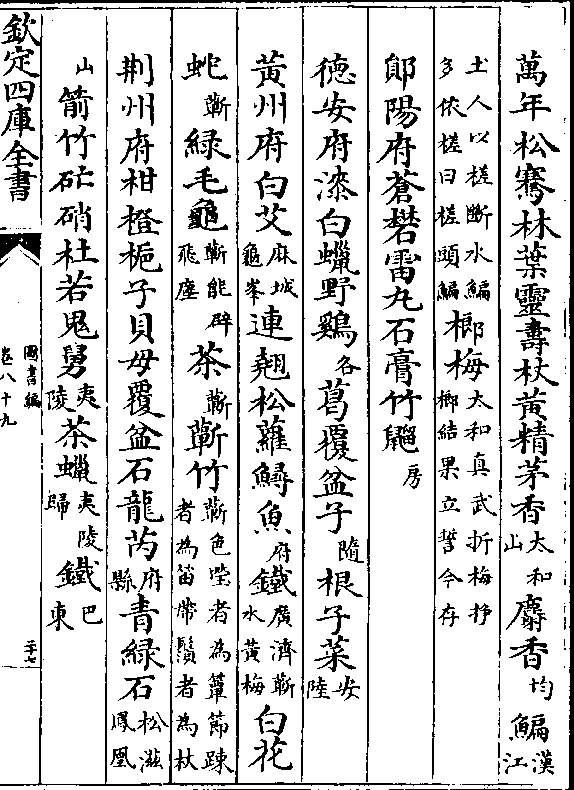 萬年松騫林葉靈壽杖黄精茅香太和山麝香均鯿漢江
土人以槎斷水鯿多依槎曰槎頭鯿榔梅太和真武折梅挿榔結果立誓今存
鄖陽府蒼礬雷九石膏竹䶉房
德安府漆白蠟野鷄各葛覆盆子隨根子菜安陸
黄州府白艾麻城龜峯連翹松蘿鱘魚府鐵廣濟蘄水黄梅白花
蛇蘄緑毛龜蘄能辟飛塵茶蘄蘄竹蘄色瑩者為簟節踈者為笛帶鬚者為杖
荆州府柑橙梔子貝母覆盆石龍芮府縣青緑石松滋鳳凰
山箭竹硭硝杜若鬼舅夷陵茶蠟夷陵歸鐵巴東
欽定四庫全書
圖書編
卷八十九
三十七